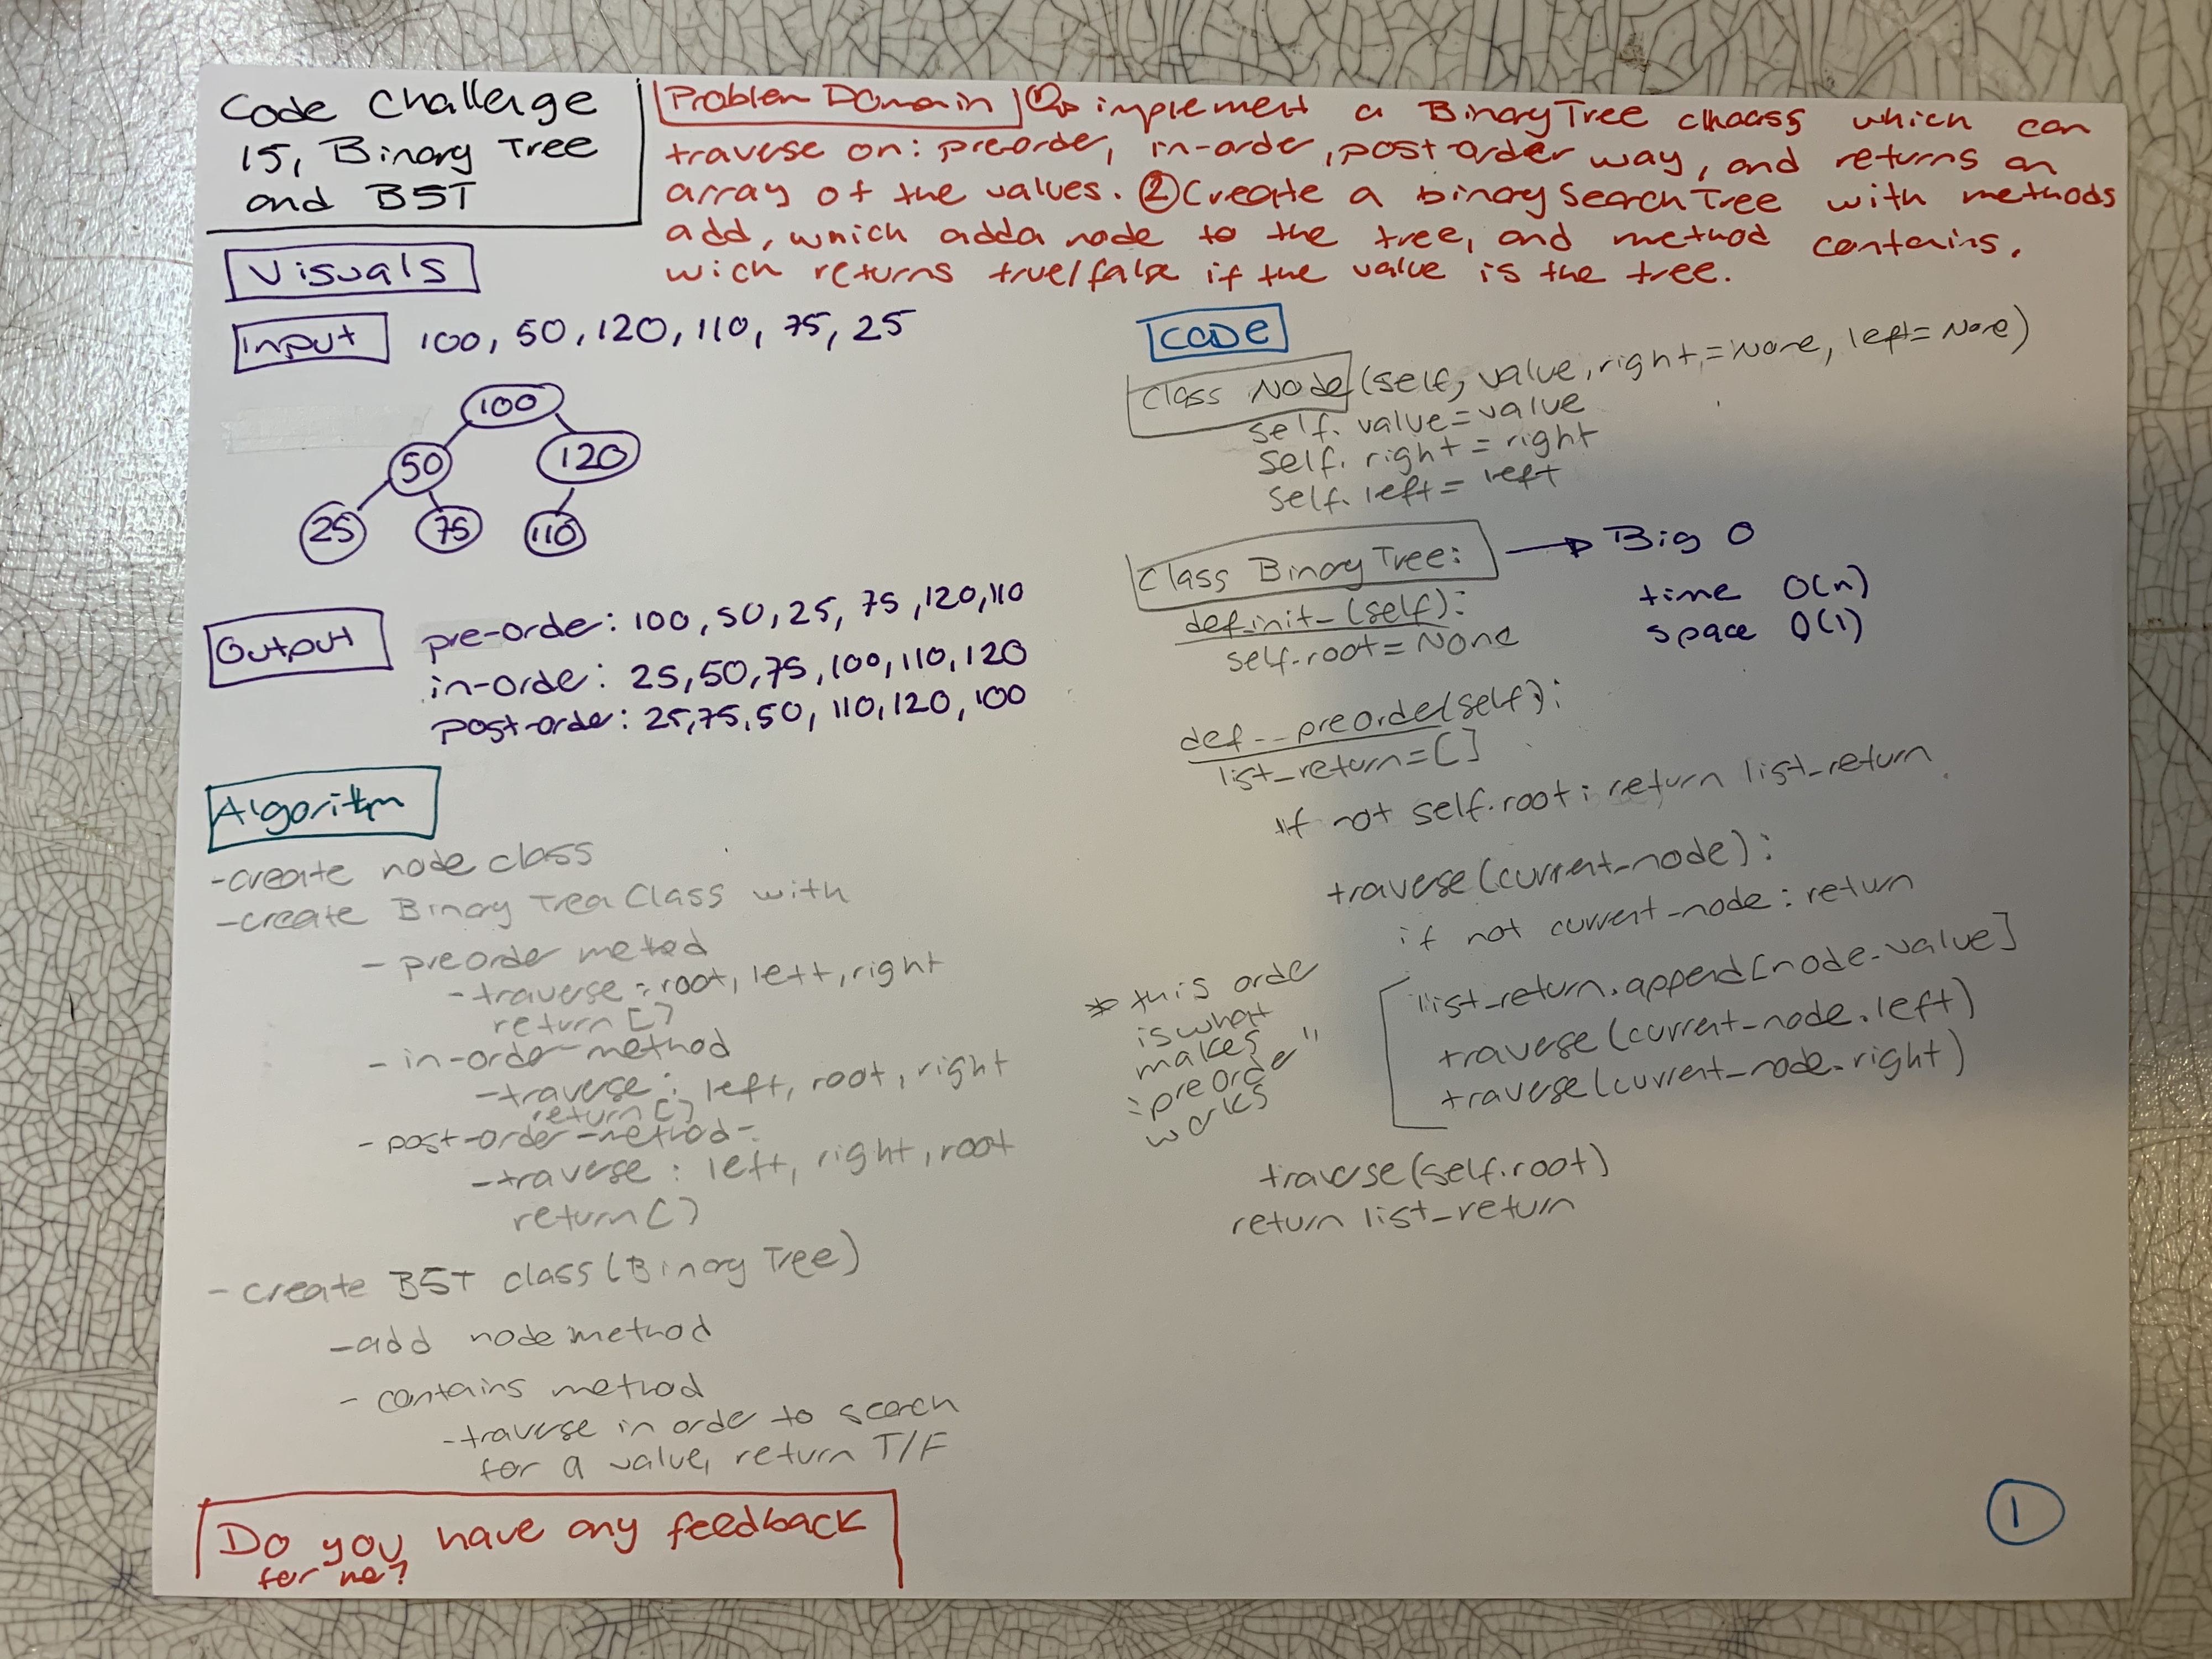 Code Challenge
15, Binary Tree
and BST
Problem Domain
① implement a BinaryTree class which can
traverse on: preorder, in-order, post order way, and returns an
array of the values. ② Create a binary Search Tree with methods
add, which adda node to the tree, and method contains.
wich returns true/false if the value is the tree.
Visuals
Input 100, 50, 120, 110, 75, 25
100
50 120
25 75 110
Output pre-order: 100, 50, 25, 75, 120, 110
in-order: 25, 50, 75, 100, 110, 120
post-order: 25, 75, 50, 110, 120, 100
Algorithm
-create node class
-create Binary Trea Class with
- preorder metod
-traverse: root, left, right
return []
- in-order-method
-traverse: left, root, right
return []
- post-order-method-:
-traverse: left, right, root
return []
- create BST class (Binary Tree)
-add node method
- contains method
-traverse in order to search
for a value, return T/F
Do you have any feedback
for me?
CODE
Class Node (self, value, right=None, left=None)
self.value=value
self.right=right
self.left=left
Class Binary Tree: → Big O
time O(n)
space O(1)
def_init_(self):
self.root=None
def--preorder(self):
list_return=[]
if not self.root: return list_return
traverse(current_node):
if not current-node: return
list_return.append[node.value]
traverse(current_node.left)
traverse(current_node.right)
* this order
is what
makes
"preorder"
works
traverse(self.root)
return list_return
1